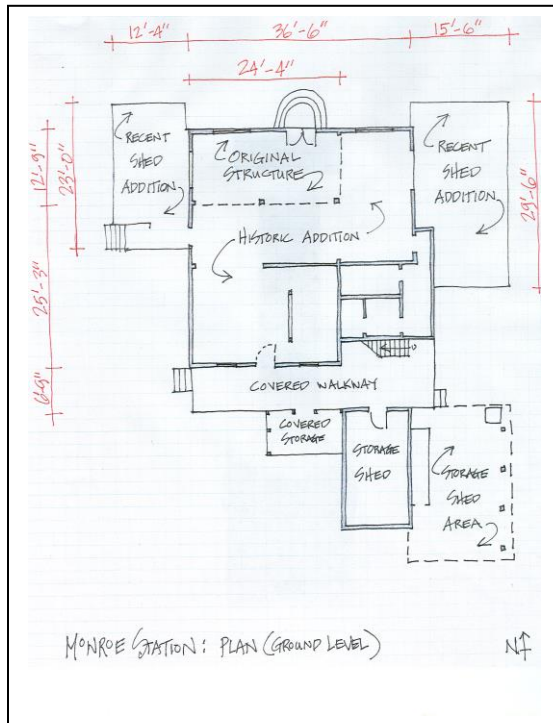 12'-4"
36'-6"
15'-6"
24'-4"
12'-9"
23'-0"
25'-3"
6'-9"
29'-6"
RECENT
SHED
ADDITION
ORIGINAL
STRUCTURE
RECENT
SHED
ADDITION
HISTORIC ADDITION
COVERED WALKWAY
COVERED
STORAGE
STORAGE
SHED
STORAGE
SHED
AREA
MONROE STATION: PLAN (GROUND LEVEL)
N